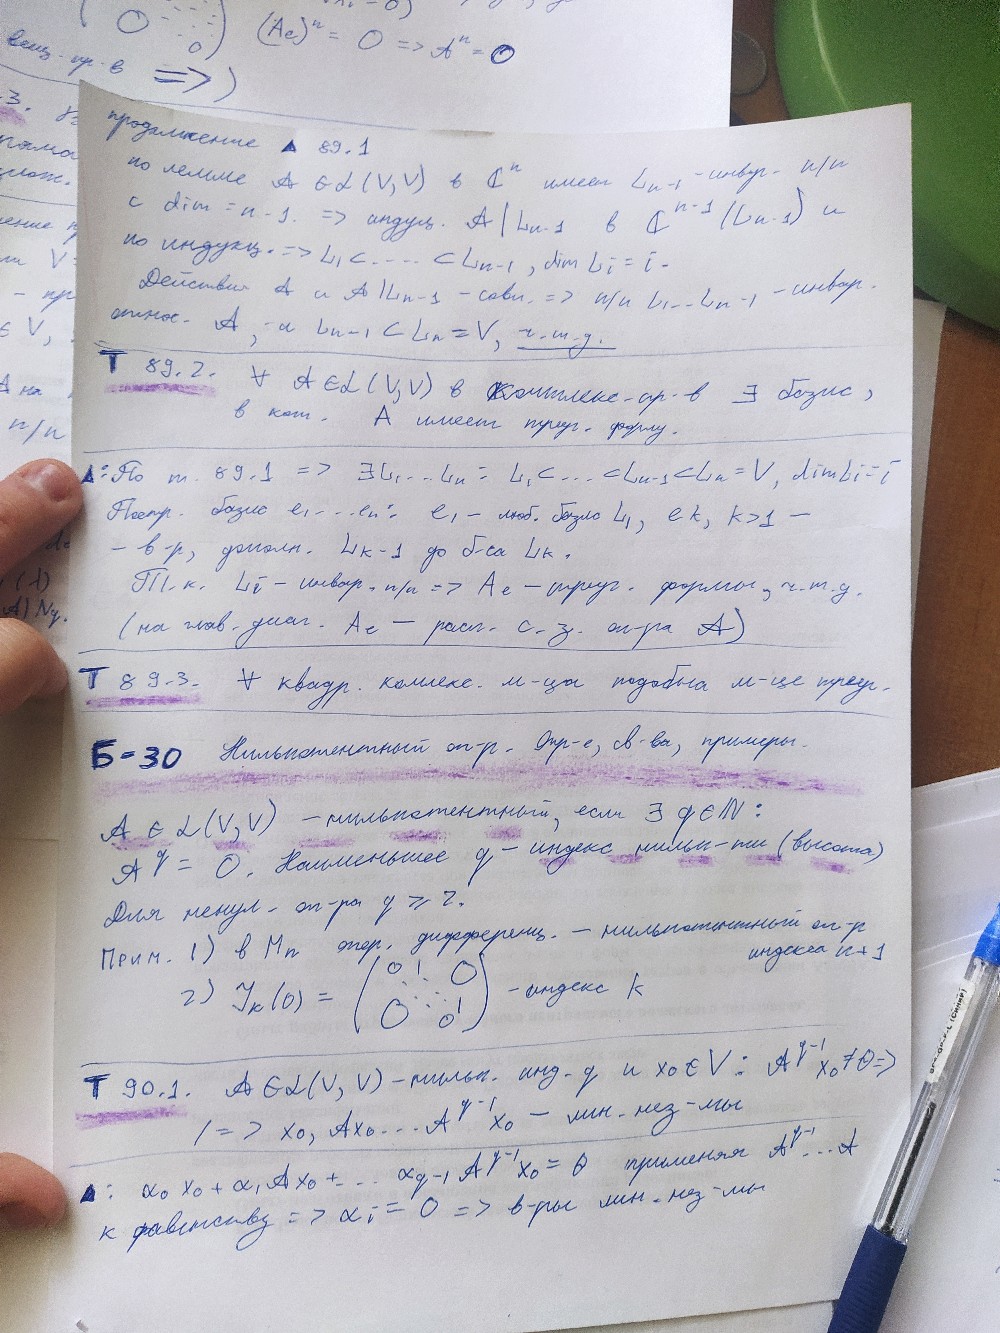 (Ae)ⁿ = 0 => 𝒜ⁿ = 0
вещ. пр-в =>)
продолжение ▲ 89.1
по лемме 𝒜 ∈ ℒ(V,V) в ℂⁿ имеет Lₙ₋₁ - инвар. п/п
с dim = n-1. => индуц. 𝒜|Lₙ₋₁ в ℂⁿ⁻¹ (Lₙ₋₁) и
по индукц. => L₁ ⊂ .... ⊂ Lₙ₋₁, dim Lᵢ = i.
Действия 𝒜 и 𝒜|Lₙ₋₁ - совп. => п/п L₁...Lₙ₋₁ - инвар.
относ. 𝒜, а Lₙ₋₁ ⊂ Lₙ = V, ч.т.д.
Т 89.2. ∀ 𝒜 ∈ ℒ(V,V) в комплекс. пр-в ∃ базис,
в кот. А имеет треуг. форму.
▲: По т. 89.1 => ∃L₁...Lₙ: L₁ ⊂ ... ⊂ Lₙ₋₁ ⊂ Lₙ = V, dim Lᵢ = i
Постр. базис e₁...eₙ: e₁ - люб. базис L₁, eₖ, k>1 -
- в-р, дополн. Lₖ₋₁ до б-са Lₖ.
Т.к. Lᵢ - инвар. п/п => Ae - треуг. формы, ч.т.д.
(на глав. диаг. Ae - расп. с.з. оп-ра 𝒜)
Т 89.3. ∀ квадр. комлекс. м-ца подобна м-це треуг.
Б-30 Нильпотентный оп-р. Опр-е, св-ва, примеры.
𝒜 ∈ ℒ(V,V) - нильпотентный, если ∃ q ∈ ℕ:
𝒜^q = 0. Наименьшее q - индекс нильп-ти (высота)
Для ненул. оп-ра q ⩾ 2.
Прим. 1) в Мₙ опер. дифференц. - нильпотентный оп-р
индекса n+1
2) Jₖ(0) = (0 1 0 0 0 1) - индекс k
Т 90.1. 𝒜 ∈ ℒ(V,V) - нильп. инд. q и x₀ ∈ V: A^q⁻¹ x₀ ≠ θ =>
|=> x₀, Ax₀...A^q⁻¹x₀ - лин. нез-мы
▲: α₀x₀ + α₁Ax₀ + ... α_q₋₁A^q⁻¹x₀ = θ применяя A^q⁻¹...A
к равенству => αᵢ = 0 => в-ры лин. нез-мы